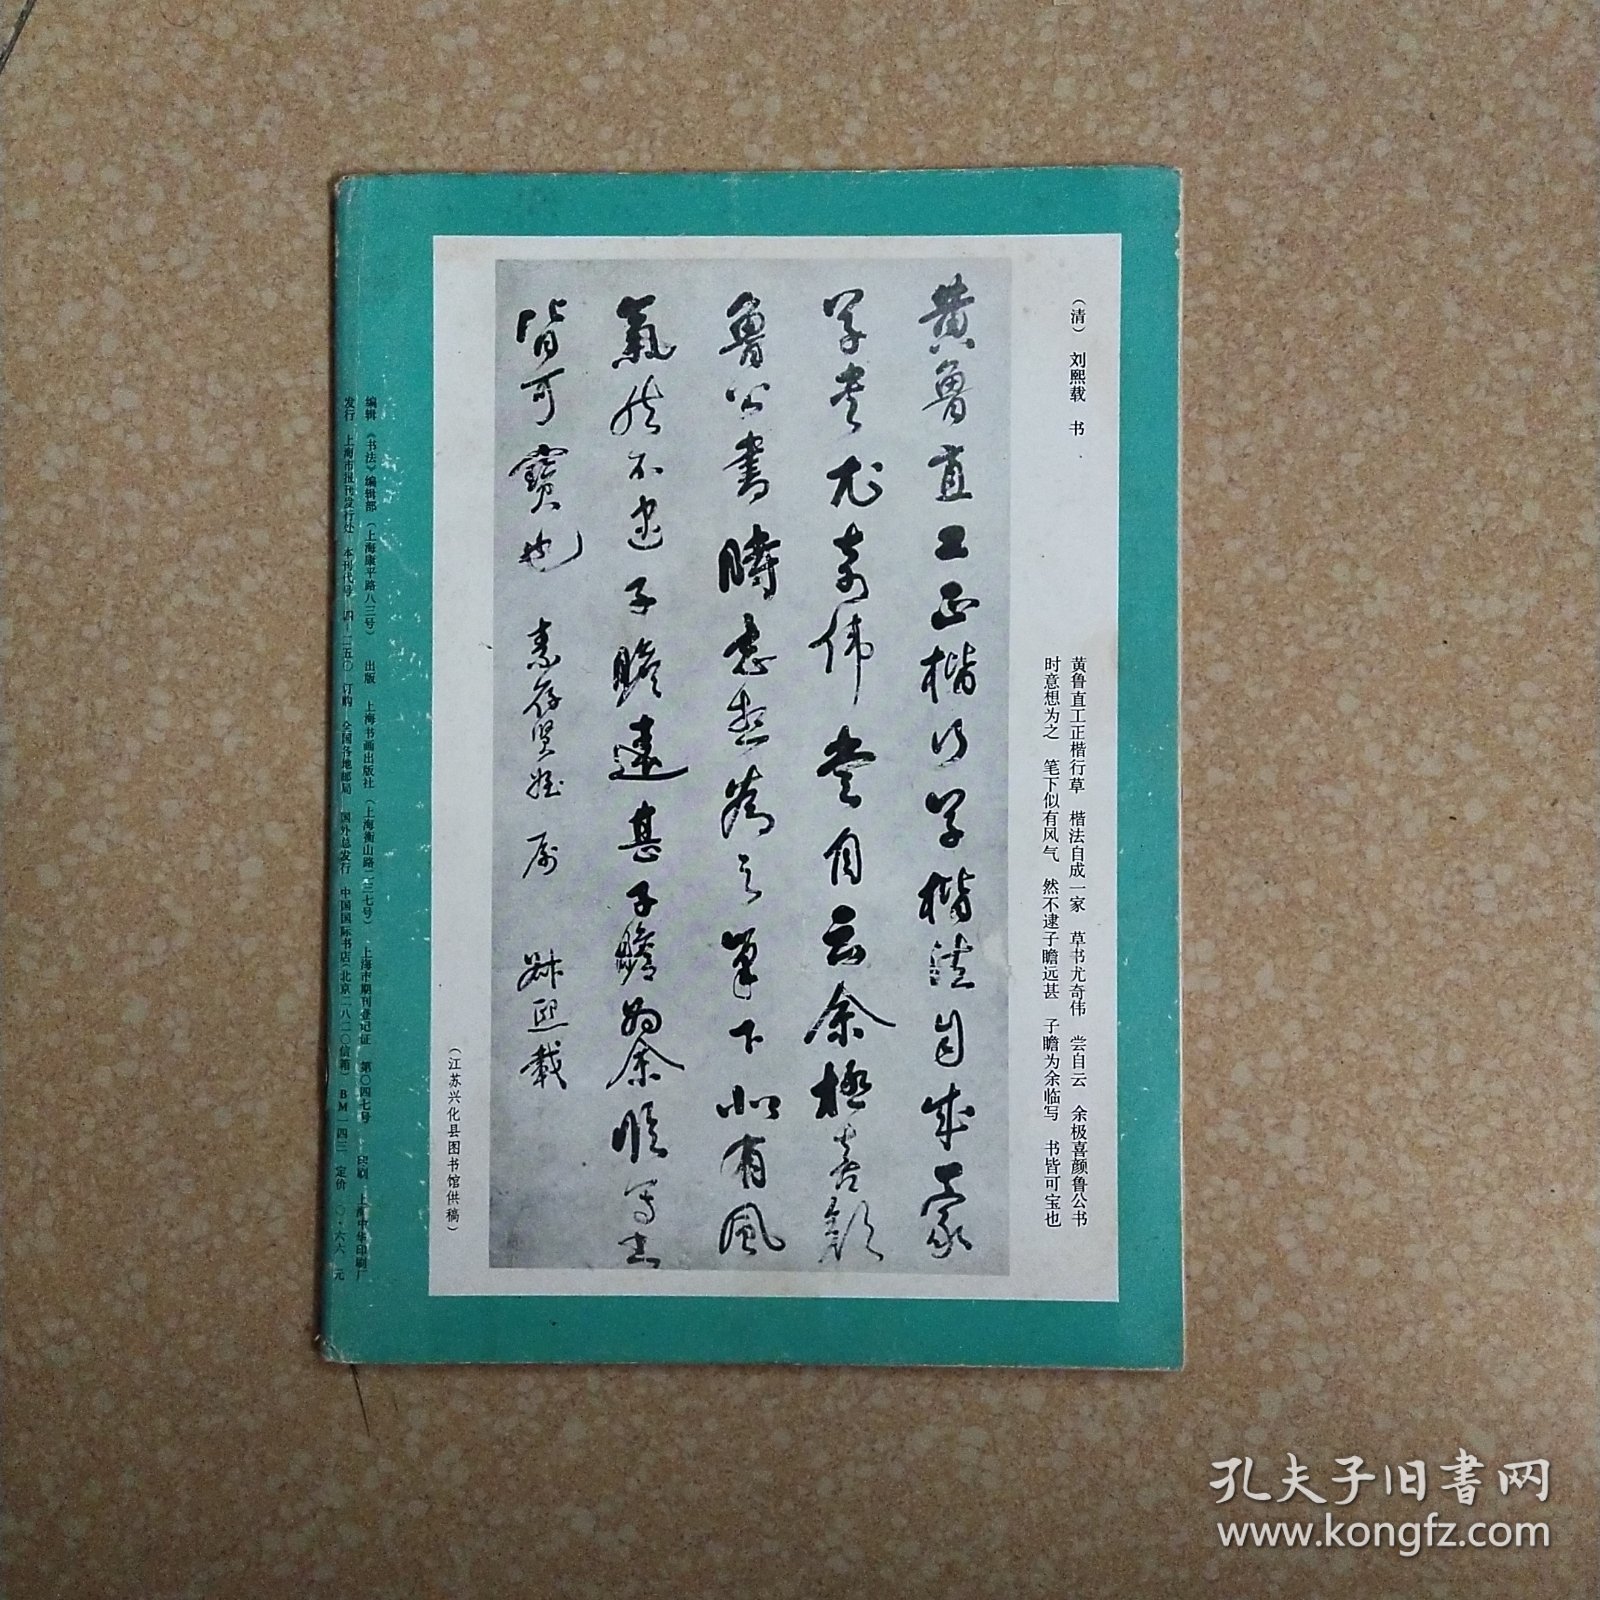 （清） 刘熙载 书
黄鲁直工正楷行草 楷法自成一家 草书尤奇伟 尝自云 余极喜颜鲁公书
时意想为之 笔下似有风气 然不逮子瞻远甚 子瞻为余临写 书皆可宝也
黄鲁直工正楷行草楷法自成一家
草书尤奇伟尝自云余极喜颜
鲁公書時意想為之筆下似有風
氣然不逮子瞻遠甚子瞻為余臨写书
皆可寶也 素存贤姪属 熙載
（江苏兴化县图书馆供稿）
编辑 《书法》编辑部（上海康平路八三号） 出版 上海书画出版社（上海衡山路二三七号） 上海市期刊登记证 第〇四七号 印刷 上海中华印刷厂
发行 上海市报刊发行处 本刊代号 四—二五〇 订购 全国各地邮局 国外总发行 中国国际书店（北京二八二〇信箱） BM一四三 定价 〇·六六元
孔夫子旧書网
www.kongfz.com